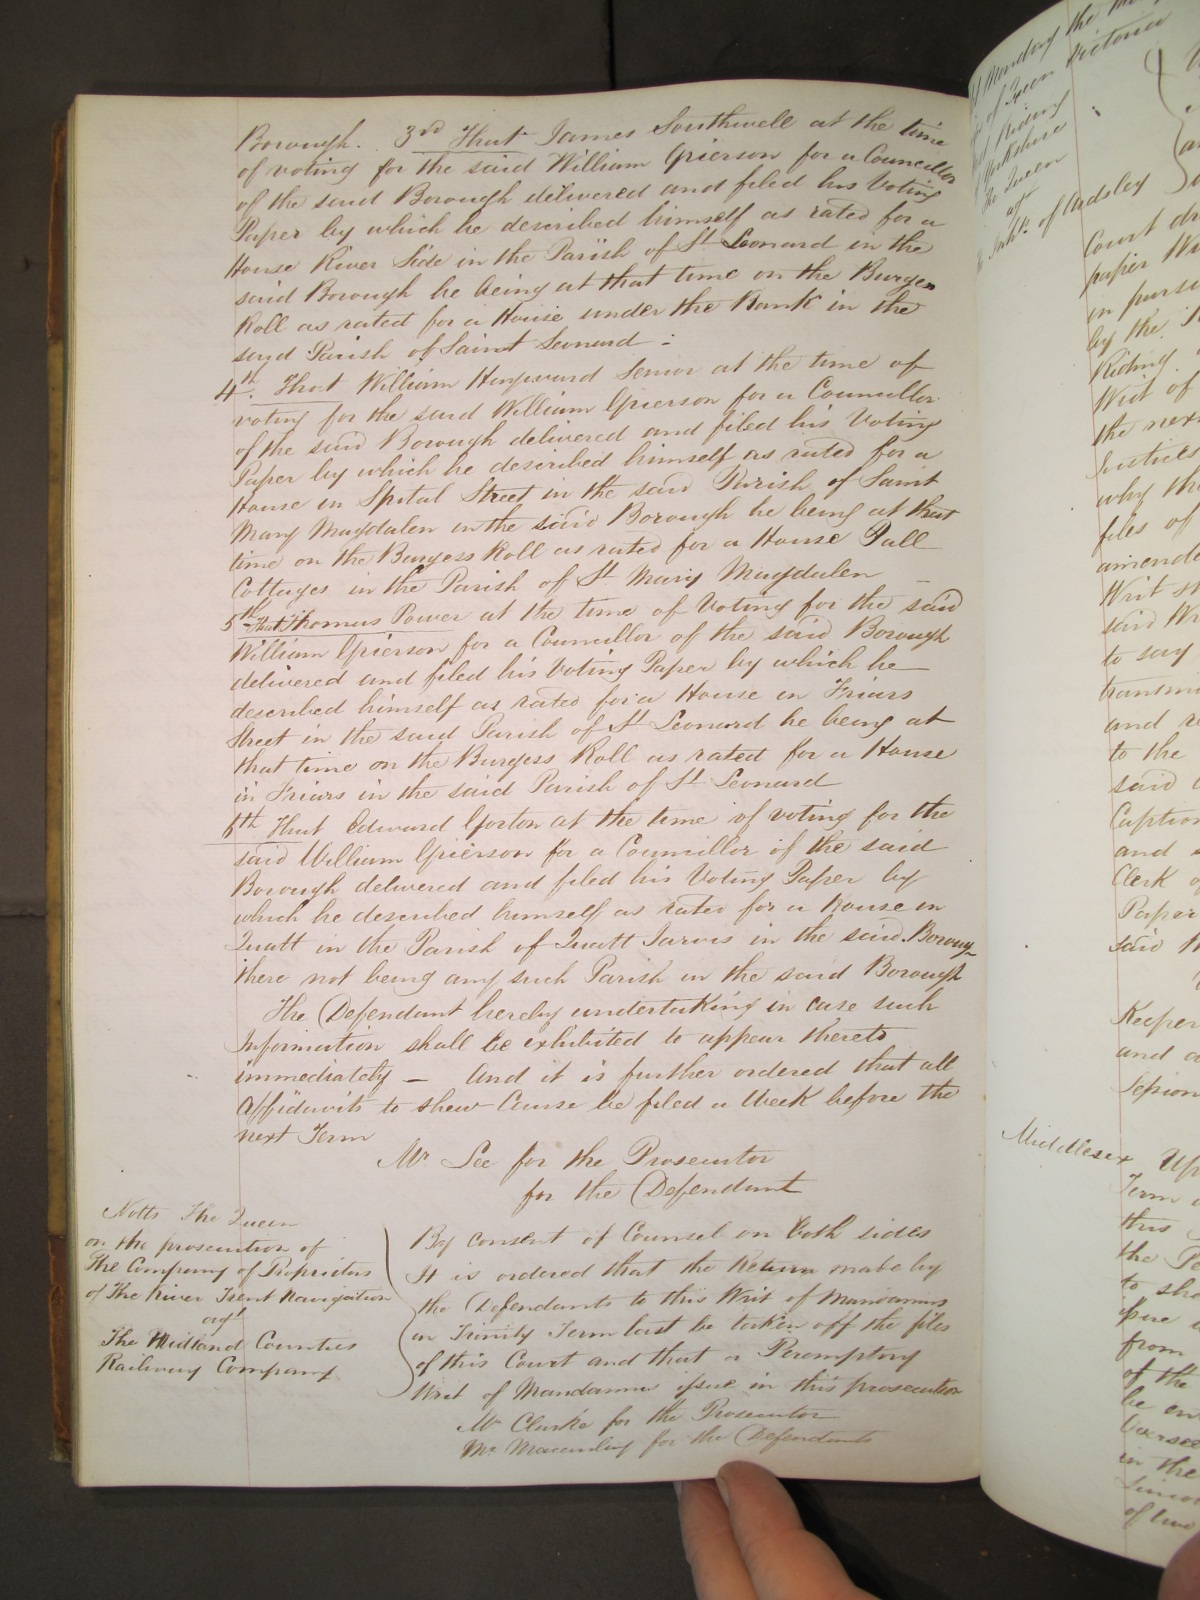 Borough. 3rd That James Southwell at the time
of voting for the said William Grierson for a Councillor
of the said Borough delivered and filed his Voting
Paper by which he described himself as rated for a
House River Side in the Parish of St Leonard in the
said Borough he being at that time on the Burgess
Roll as rated for a House under the Bank in the
said Parish of Saint Leonard :
4th. That William Haywood Senior at the time of
voting for the said William Grierson for a Councillor
of the said Borough delivered and filed his Voting
Paper by which he described himself as rated for a
House in Spital Street in the said Parish of Saint
Mary Magdalen in the said Borough he being at that
time on the Burgess Roll as rated for a House Pall
Cottages in the Parish of St Mary Magdalen —
5th That Thomas Power at the time of Voting for the said
William Grierson for a Councillor of the said Borough
delivered and filed his Voting Paper by which he
described himself as rated for a House in Friars
Street in the said Parish of St Leonard he being at
that time on the Burgess Roll as rated for a House
in Friars in the said Parish of St Leonard
6th That Edward Gorton at the time of voting for the
said William Grierson for a Councillor of the said
Borough delivered and filed his Voting Paper by
which he described himself as rated for a house in
Quatt in the Parish of Quatt Jarvis in the said Borough
there not being any such Parish in the said Borough
The Defendant hereby undertaking in case such
Information shall be exhibited to appear thereto
immediately — And it is further ordered that all
Affidavits to shew Cause be filed a Week before the
next Term
Mr Lee for the Prosecutor
for the Defendant
Notts The Queen
on the prosecution of
The Company of Proprietors
of The River Trent Navigation
agt
The Midland Counties
Railway Company
By consent of Counsel on both sides
It is ordered that the Return made by
the Defendants to this Writ of Mandamus
in Trinity Term last be taken off the files
of this Court and that a Peremptory
Writ of Mandamus issue in this prosecution
Mr Clarke for the Prosecutor
Mr Macaulay for the Defendants
of Ardsley
Court
paper
by the
Riding
Writ of
the next
Justices
why the
files of
said
to say
and
to the
said
Caption
and
Clerk
Paper
said
Keeper
and
Session
Middlesex
Term
this
the
from
of the
be
in the